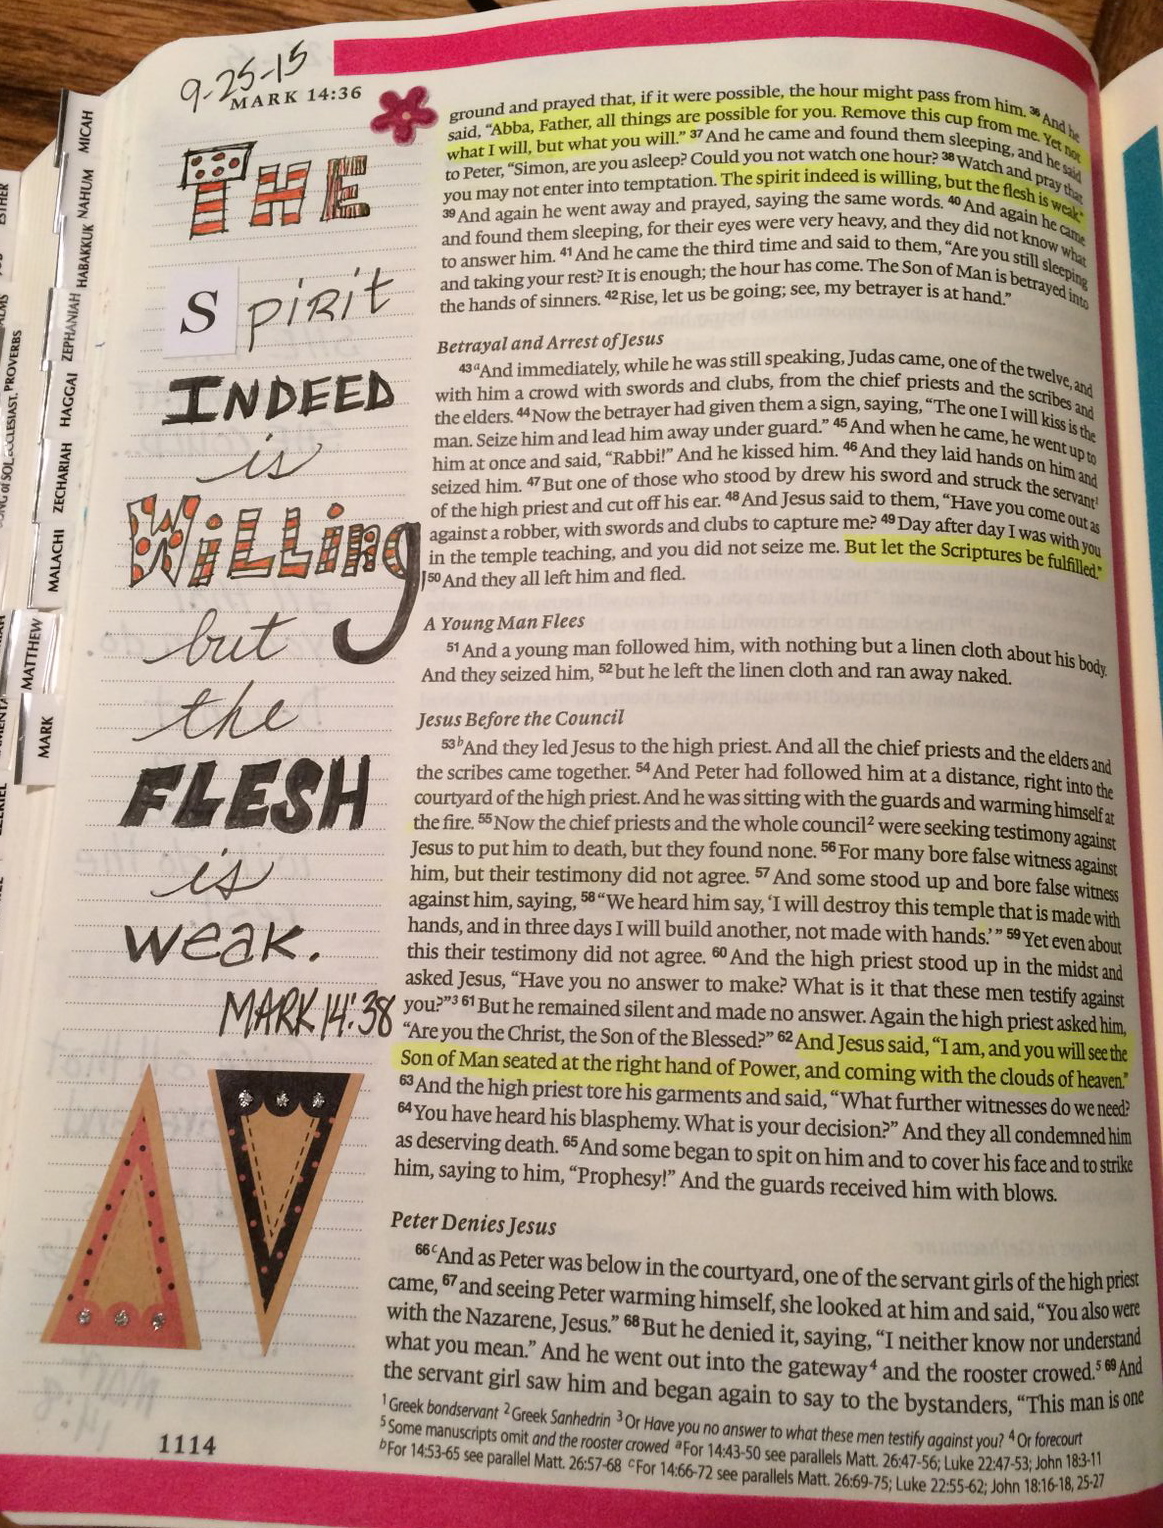 9-25-15
MARK 14:36
THE
Spirit
INDEED
is
Willing
but
the
FLESH
is
weak.
MARK 14:38
1114
ground and prayed that, if it were possible, the hour might pass from him. 36 And he
said, “Abba, Father, all things are possible for you. Remove this cup from me. Yet not
what I will, but what you will.” 37 And he came and found them sleeping, and he said
to Peter, “Simon, are you asleep? Could you not watch one hour? 38 Watch and pray that
you may not enter into temptation. The spirit indeed is willing, but the flesh is weak.”
39 And again he went away and prayed, saying the same words. 40 And again he came
and found them sleeping, for their eyes were very heavy, and they did not know what
to answer him. 41 And he came the third time and said to them, “Are you still sleeping
and taking your rest? It is enough; the hour has come. The Son of Man is betrayed into
the hands of sinners. 42 Rise, let us be going; see, my betrayer is at hand.”
Betrayal and Arrest of Jesus
43 a And immediately, while he was still speaking, Judas came, one of the twelve, and
with him a crowd with swords and clubs, from the chief priests and the scribes and
the elders. 44 Now the betrayer had given them a sign, saying, “The one I will kiss is the
man. Seize him and lead him away under guard.” 45 And when he came, he went up to
him at once and said, “Rabbi!” And he kissed him. 46 And they laid hands on him and
seized him. 47 But one of those who stood by drew his sword and struck the servant1
of the high priest and cut off his ear. 48 And Jesus said to them, “Have you come out as
against a robber, with swords and clubs to capture me? 49 Day after day I was with you
in the temple teaching, and you did not seize me. But let the Scriptures be fulfilled.”
50 And they all left him and fled.
A Young Man Flees
51 And a young man followed him, with nothing but a linen cloth about his body.
And they seized him, 52 but he left the linen cloth and ran away naked.
Jesus Before the Council
53 b And they led Jesus to the high priest. And all the chief priests and the elders and
the scribes came together. 54 And Peter had followed him at a distance, right into the
courtyard of the high priest. And he was sitting with the guards and warming himself at
the fire. 55 Now the chief priests and the whole council2 were seeking testimony against
Jesus to put him to death, but they found none. 56 For many bore false witness against
him, but their testimony did not agree. 57 And some stood up and bore false witness
against him, saying, 58 “We heard him say, ‘I will destroy this temple that is made with
hands, and in three days I will build another, not made with hands.’” 59 Yet even about
this their testimony did not agree. 60 And the high priest stood up in the midst and
asked Jesus, “Have you no answer to make? What is it that these men testify against
you?”3 61 But he remained silent and made no answer. Again the high priest asked him,
“Are you the Christ, the Son of the Blessed?” 62 And Jesus said, “I am, and you will see the
Son of Man seated at the right hand of Power, and coming with the clouds of heaven.”
63 And the high priest tore his garments and said, “What further witnesses do we need?
64 You have heard his blasphemy. What is your decision?” And they all condemned him
as deserving death. 65 And some began to spit on him and to cover his face and to strike
him, saying to him, “Prophesy!” And the guards received him with blows.
Peter Denies Jesus
66 c And as Peter was below in the courtyard, one of the servant girls of the high priest
came, 67 and seeing Peter warming himself, she looked at him and said, “You also were
with the Nazarene, Jesus.” 68 But he denied it, saying, “I neither know nor understand
what you mean.” And he went out into the gateway4 and the rooster crowed.5 69 And
the servant girl saw him and began again to say to the bystanders, “This man is one
1 Greek bondservant 2 Greek Sanhedrin 3 Or Have you no answer to what these men testify against you? 4 Or forecourt
5 Some manuscripts omit and the rooster crowed a For 14:43-50 see parallels Matt. 26:47-56; Luke 22:47-53; John 18:3-11
b For 14:53-65 see parallel Matt. 26:57-68 c For 14:66-72 see parallels Matt. 26:69-75; Luke 22:55-62; John 18:16-18, 25-27
MICAH
NAHUM
HABAKKUK
ZEPHANIAH
HAGGAI
ZECHARIAH
MALACHI
MATTHEW
MARK
ESTHER
PROVERBS